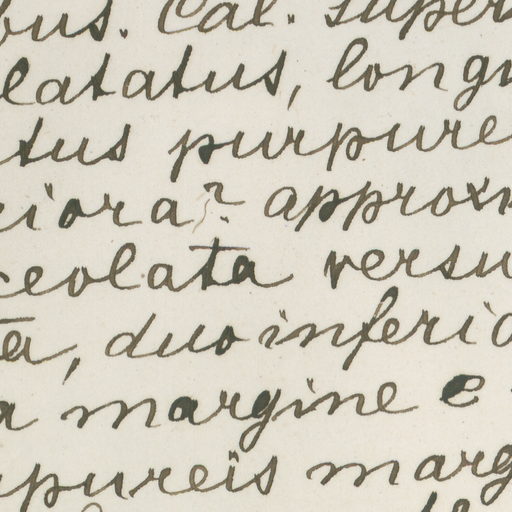 bus. Cal. super
latatus, longi
tus purpure
iora? approxi
ceolata versu
ta, duo inferio
a margine e
purpureis marg